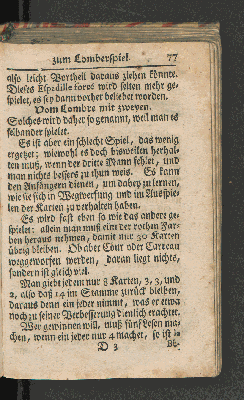 zum Lomberspiel. 77
also leicht Vortheil daraus ziehen könnte.
Dieses Espadille forcé wird selten mehr ge-
spielet, es sey dann vorher beliebet worden.
Vom Lombre mit zweyen.
Solches wird daher so genannt, weil man es
selbander spielet.
Es ist aber ein schlecht Spiel, das wenig
ergetzet; wiewohl es doch bisweilen herhal-
ten muß, wenn der dritte Mann fehlet, und
man nichts bessers zu thun weis. Es kann
den Anfängern dienen, um dabey zu lernen,
wie sie sich in Wegwerffung und im Ausspie-
len der Karten zu verhalten haben.
Es wird fast eben so wie das andere ge-
spielet: allein man muß eine der rothen Far-
ben heraus nehmen, damit nur 30 Karten
übrig bleiben. Ob aber Cœur oder Carreau
weggeworfen werden, daran liegt nichts,
sondern ist gleich viel.
Man giebt jedem nur 8 Karten, 3, 3, und
2, also daß 14 im Stamme zurück bleiben,
daraus denn ein jeder nimmt, was er etwa
noch zu seiner Verbesserung dienlich erachtet.
Wer gewinnen will, muß fünf Lesen ma-
chen, wenn ein jeder nur 4 machet, so ist
D 3